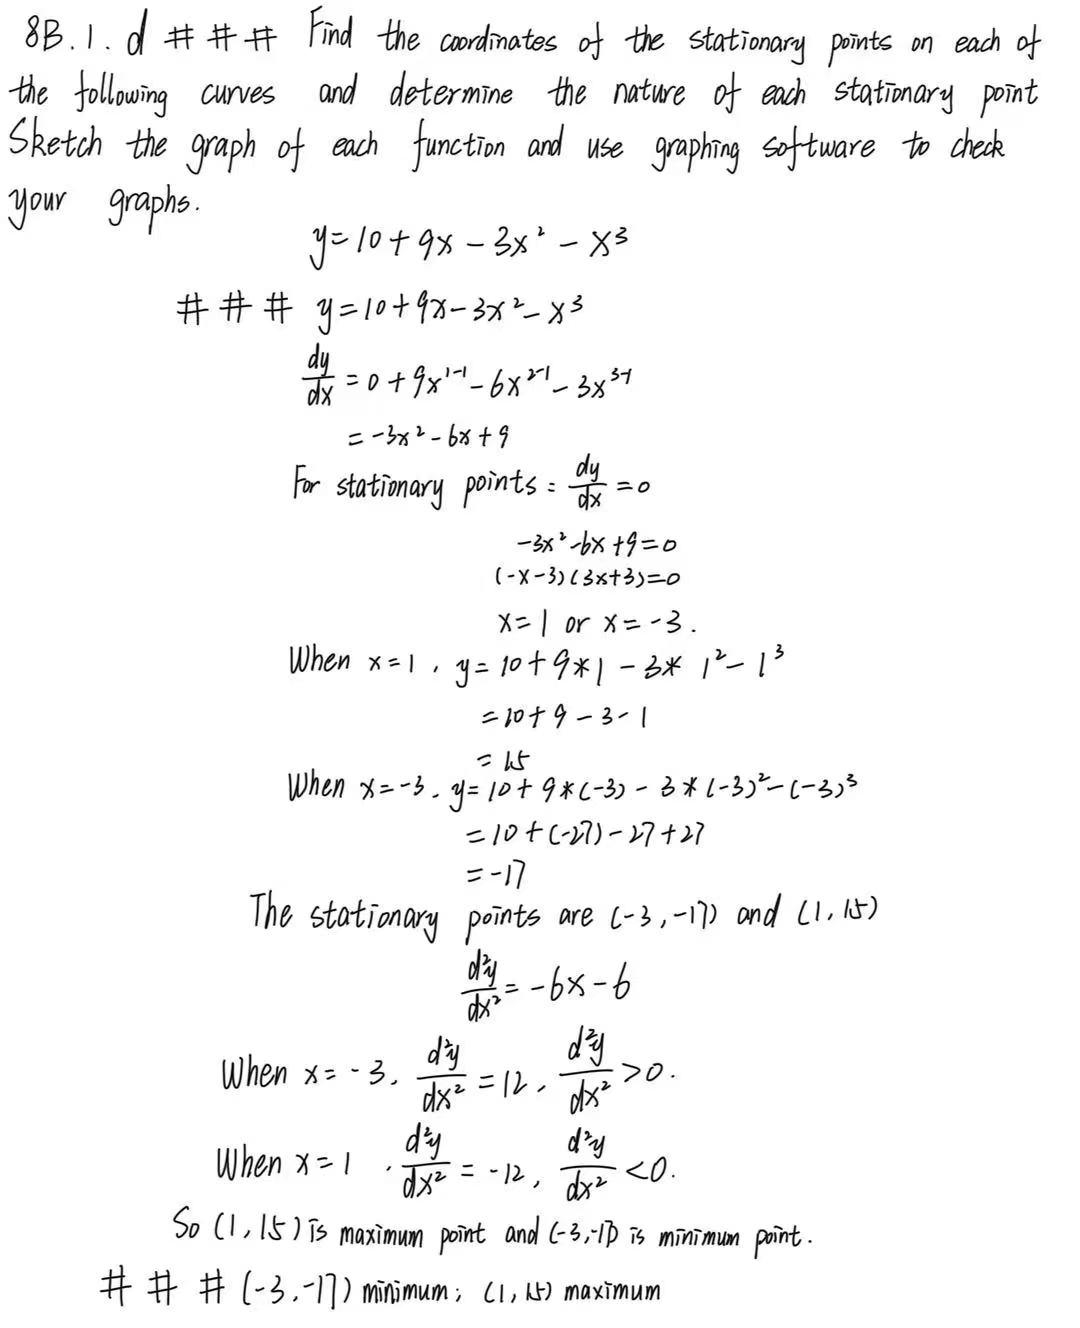 8B.1.d ### Find the coordinates of the stationary points on each of
the following curves and determine the nature of each stationary point
Sketch the graph of each function and use graphing software to check
your graphs.
y=10+9x-3x²-x³
### y=10+9x-3x²-x³
dy/dx=0+9x¹⁻¹-6x²⁻¹-3x³⁻¹
=-3x²-6x+9
For stationary points: dy/dx=0
-3x²-6x+9=0
(-x-3)(3x+3)=0
x=1 or x=-3.
When x=1, y=10+9*1-3*1²-1³
=10+9-3-1
=15
When x=-3, y=10+9*(-3)-3*(-3)²-(-3)³
=10+(-27)-27+27
=-17
The stationary points are (-3,-17) and (1,15)
d²y/dx²=-6x-6
When x=-3, d²y/dx²=12, d²y/dx²>0.
When x=1, d²y/dx²=-12, d²y/dx²<0.
So (1,15) is maximum point and (-3,-17) is minimum point.
### (-3,-17) minimum; (1,15) maximum